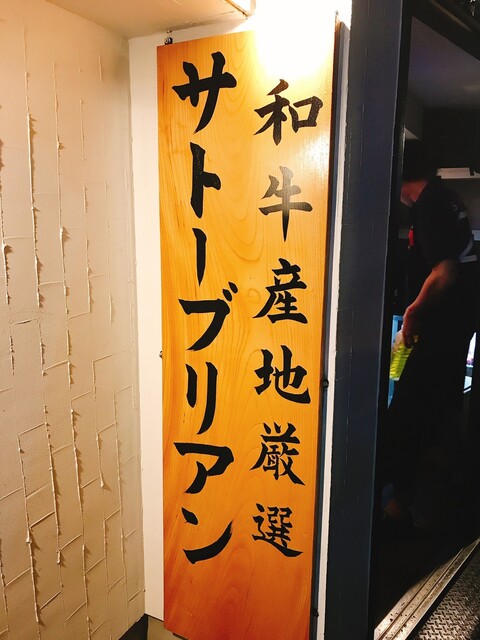 和牛産地厳選
サトーブリアン